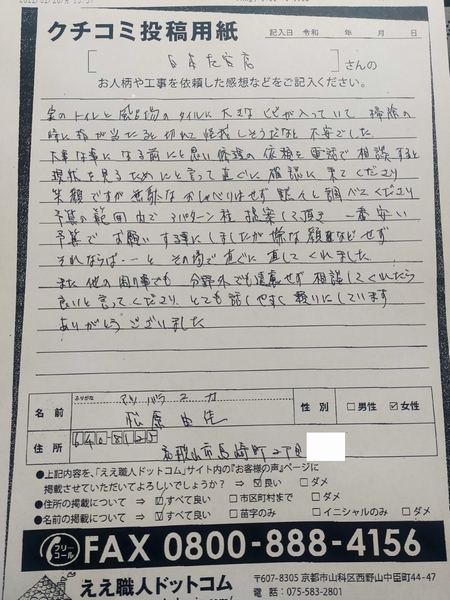 クチコミ投稿用紙
記入日 令和 年 月 日
さんの
お人柄や工事を依頼した感想などをご記入ください。
家のトイレと風呂場のタイルに大きなヒビが入っていて 掃除の
時に指が当たると切れて怪我しそうだなと不安でした
大事な事になる前にと思い修理の依頼を電話で相談すると
現状を見るためにと言って直ぐに確認に来てくださり
笑顔ですが無駄なおしゃべりはせず黙々と調べてくださり
予算の範囲内で3パターン程 提案して頂き 一番安い
予算でお願いする事にしましたが嫌な顔などせず
それならば・・と その場で直ぐに直してくれました
また 他の困り事でも 分野外でも遠慮せず 相談してくれたら
良いと言ってくださり とても話しやすく 頼りにしています
ありがとうございました
ふりがな マツバラ ユカ
名前 松原 由佳
性別 □男性 ☑女性
住所 640-8125
和歌山市 町2丁目
●上記内容を、「ええ職人ドットコム」サイト内の「お客様の声」ページに
掲載させていただいてよろしいでしょうか? ⇒ ☑良い □ダメ
●住所の掲載について ⇒ ☑すべて良い □市区町村まで □ダメ
●名前の掲載について ⇒ ☑すべて良い □苗字のみ □イニシャルのみ □ダメ
フリーコール FAX 0800-888-4156
ええ職人ドットコム
〒607-8305 京都市山科区西野山中臣町44-47
電話:075-583-2801